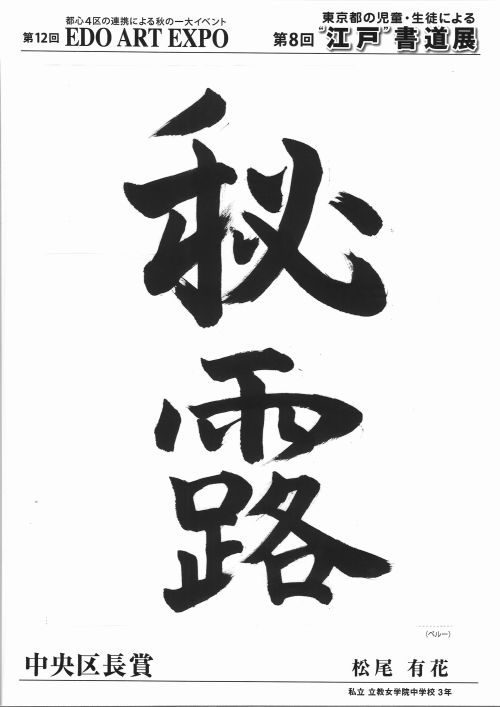 都心4区の連携による秋の一大イベント
第12回 EDO ART EXPO
東京都の児童・生徒による
第8回 "江戸"書道展
秘
露
(ペルー)
中央区長賞
松尾 有花
私立 立教女学院中学校 3年